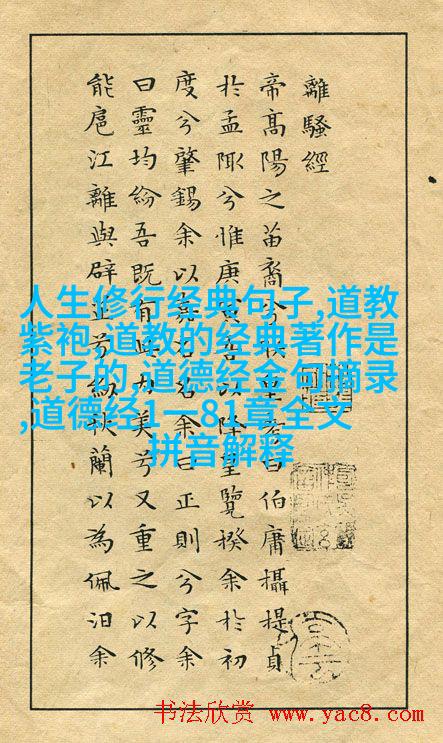 離騷經
帝高陽之苗裔兮朕皇考曰伯庸攝提貞
於孟陬兮惟庚寅吾以降皇覽揆余於初
度兮肇錫余以嘉名名余曰正則兮字余
曰靈均紛吾既有此內美兮又重之以修
能扈江離與辟芷兮紉秋蘭以為佩汩余
人生修行经典句子,道教
紫袍,道教的经典著作是
老子的 ,道德经金句摘录
,道德经1一81章全文
拼音解释
书法欣赏 www.yac8.com